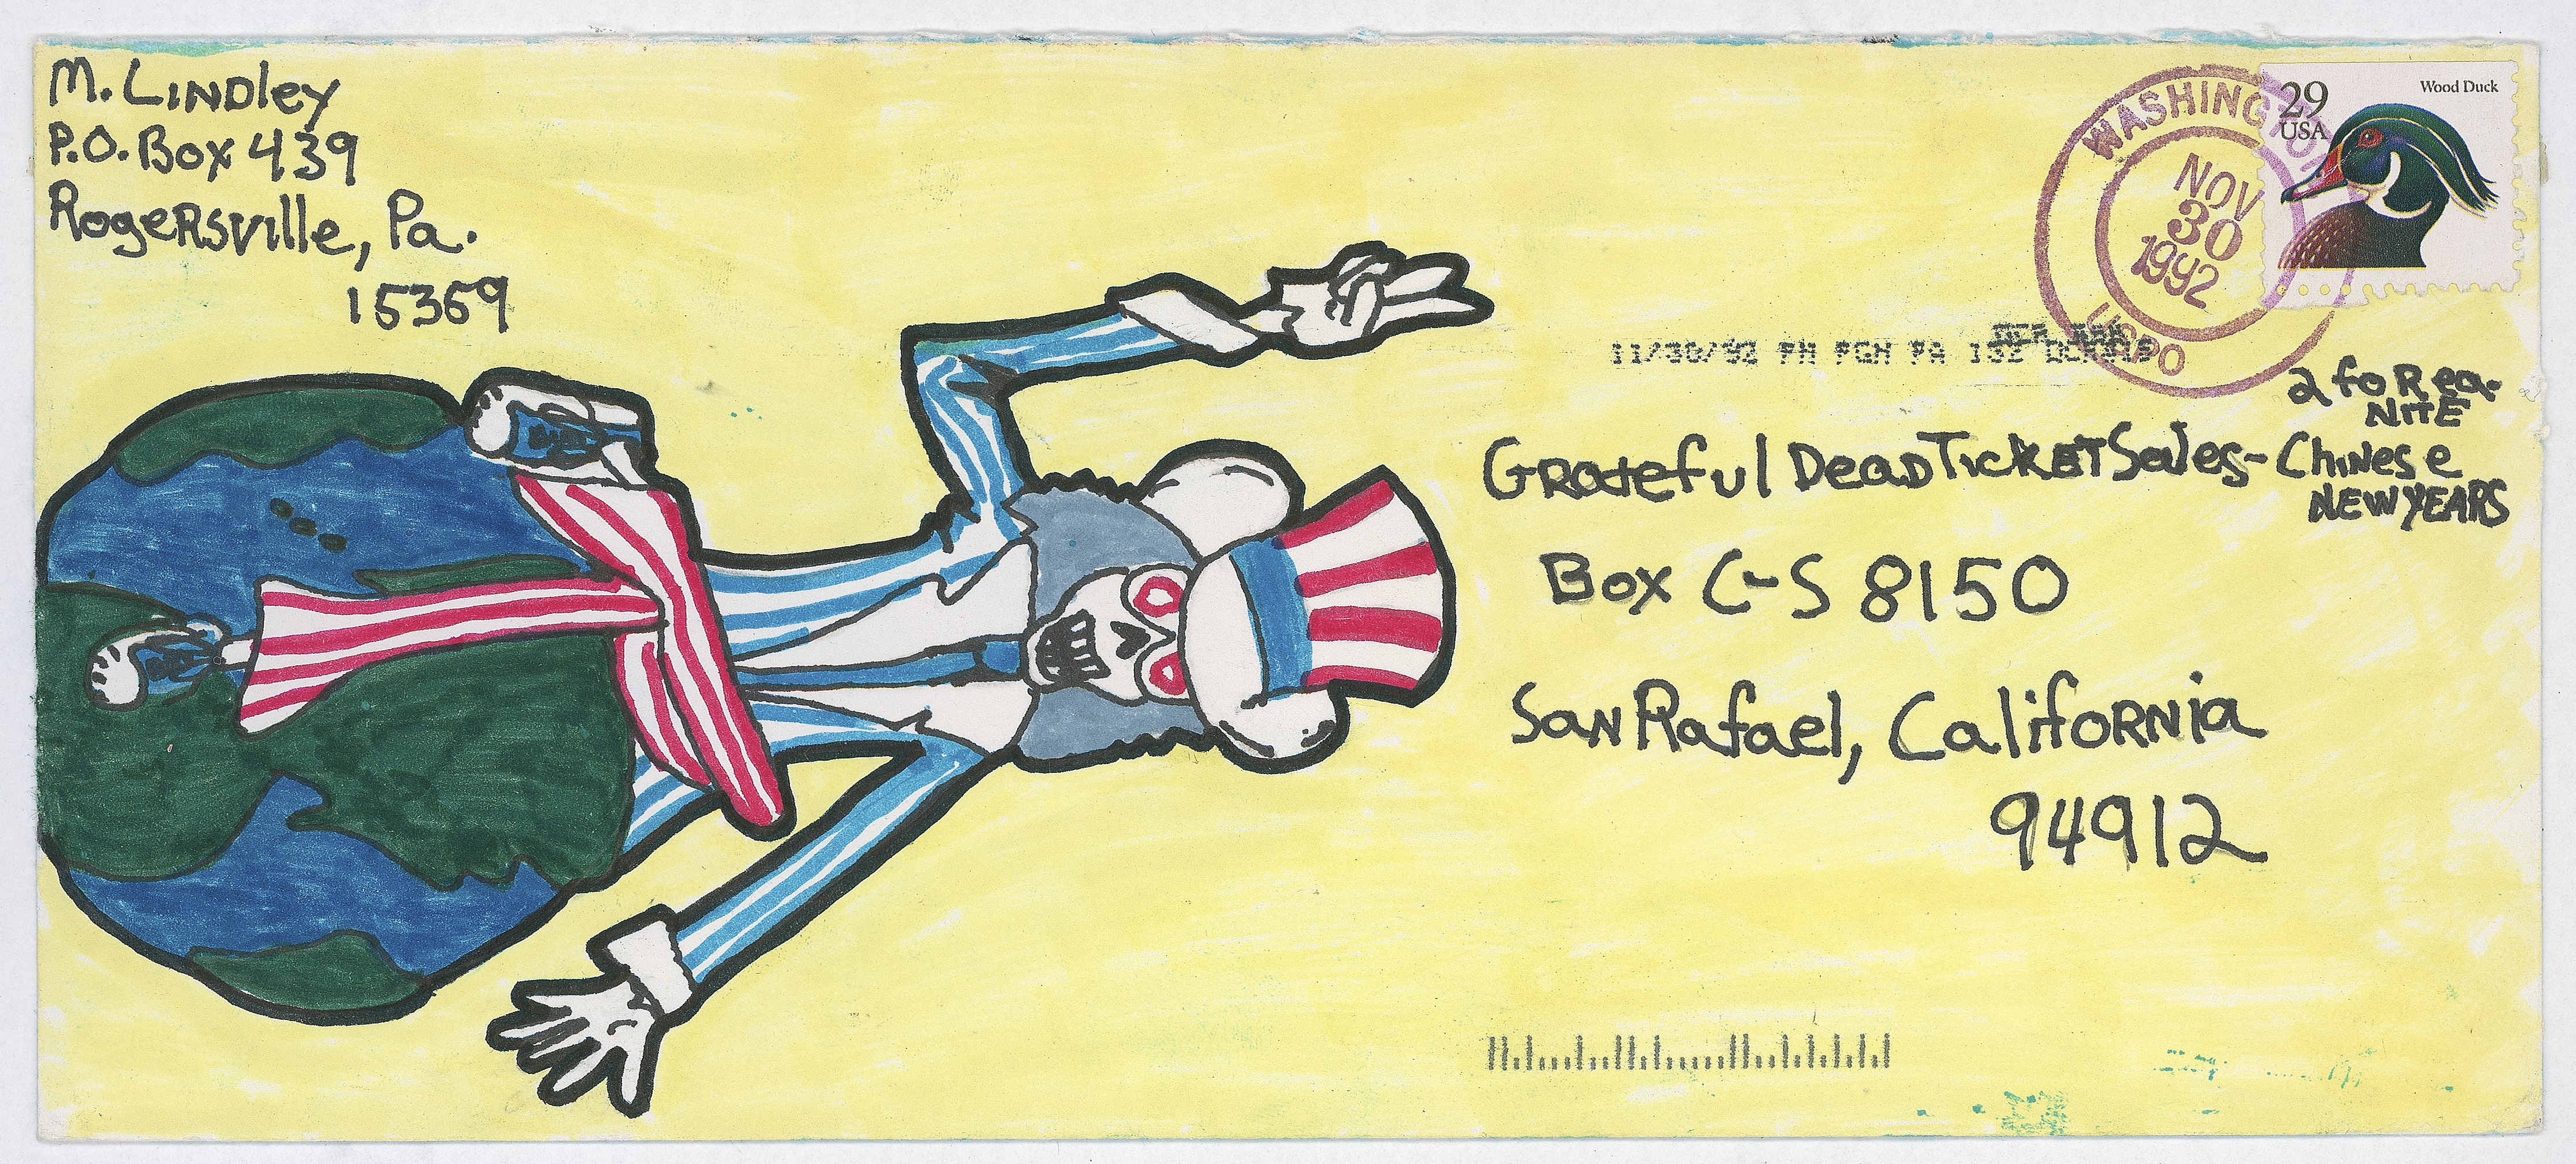 M. Lindley
P.O. Box 439
Rogersville, Pa.
15359
29
USA
Wood Duck
WASHINGTON
NOV
30
1992
USPO
11/30/92 PM PGH PA 152
2 for ea.
Nite
Grateful Dead Ticket Sales - Chinese
New Years
Box C-S 8150
San Rafael, California
94912